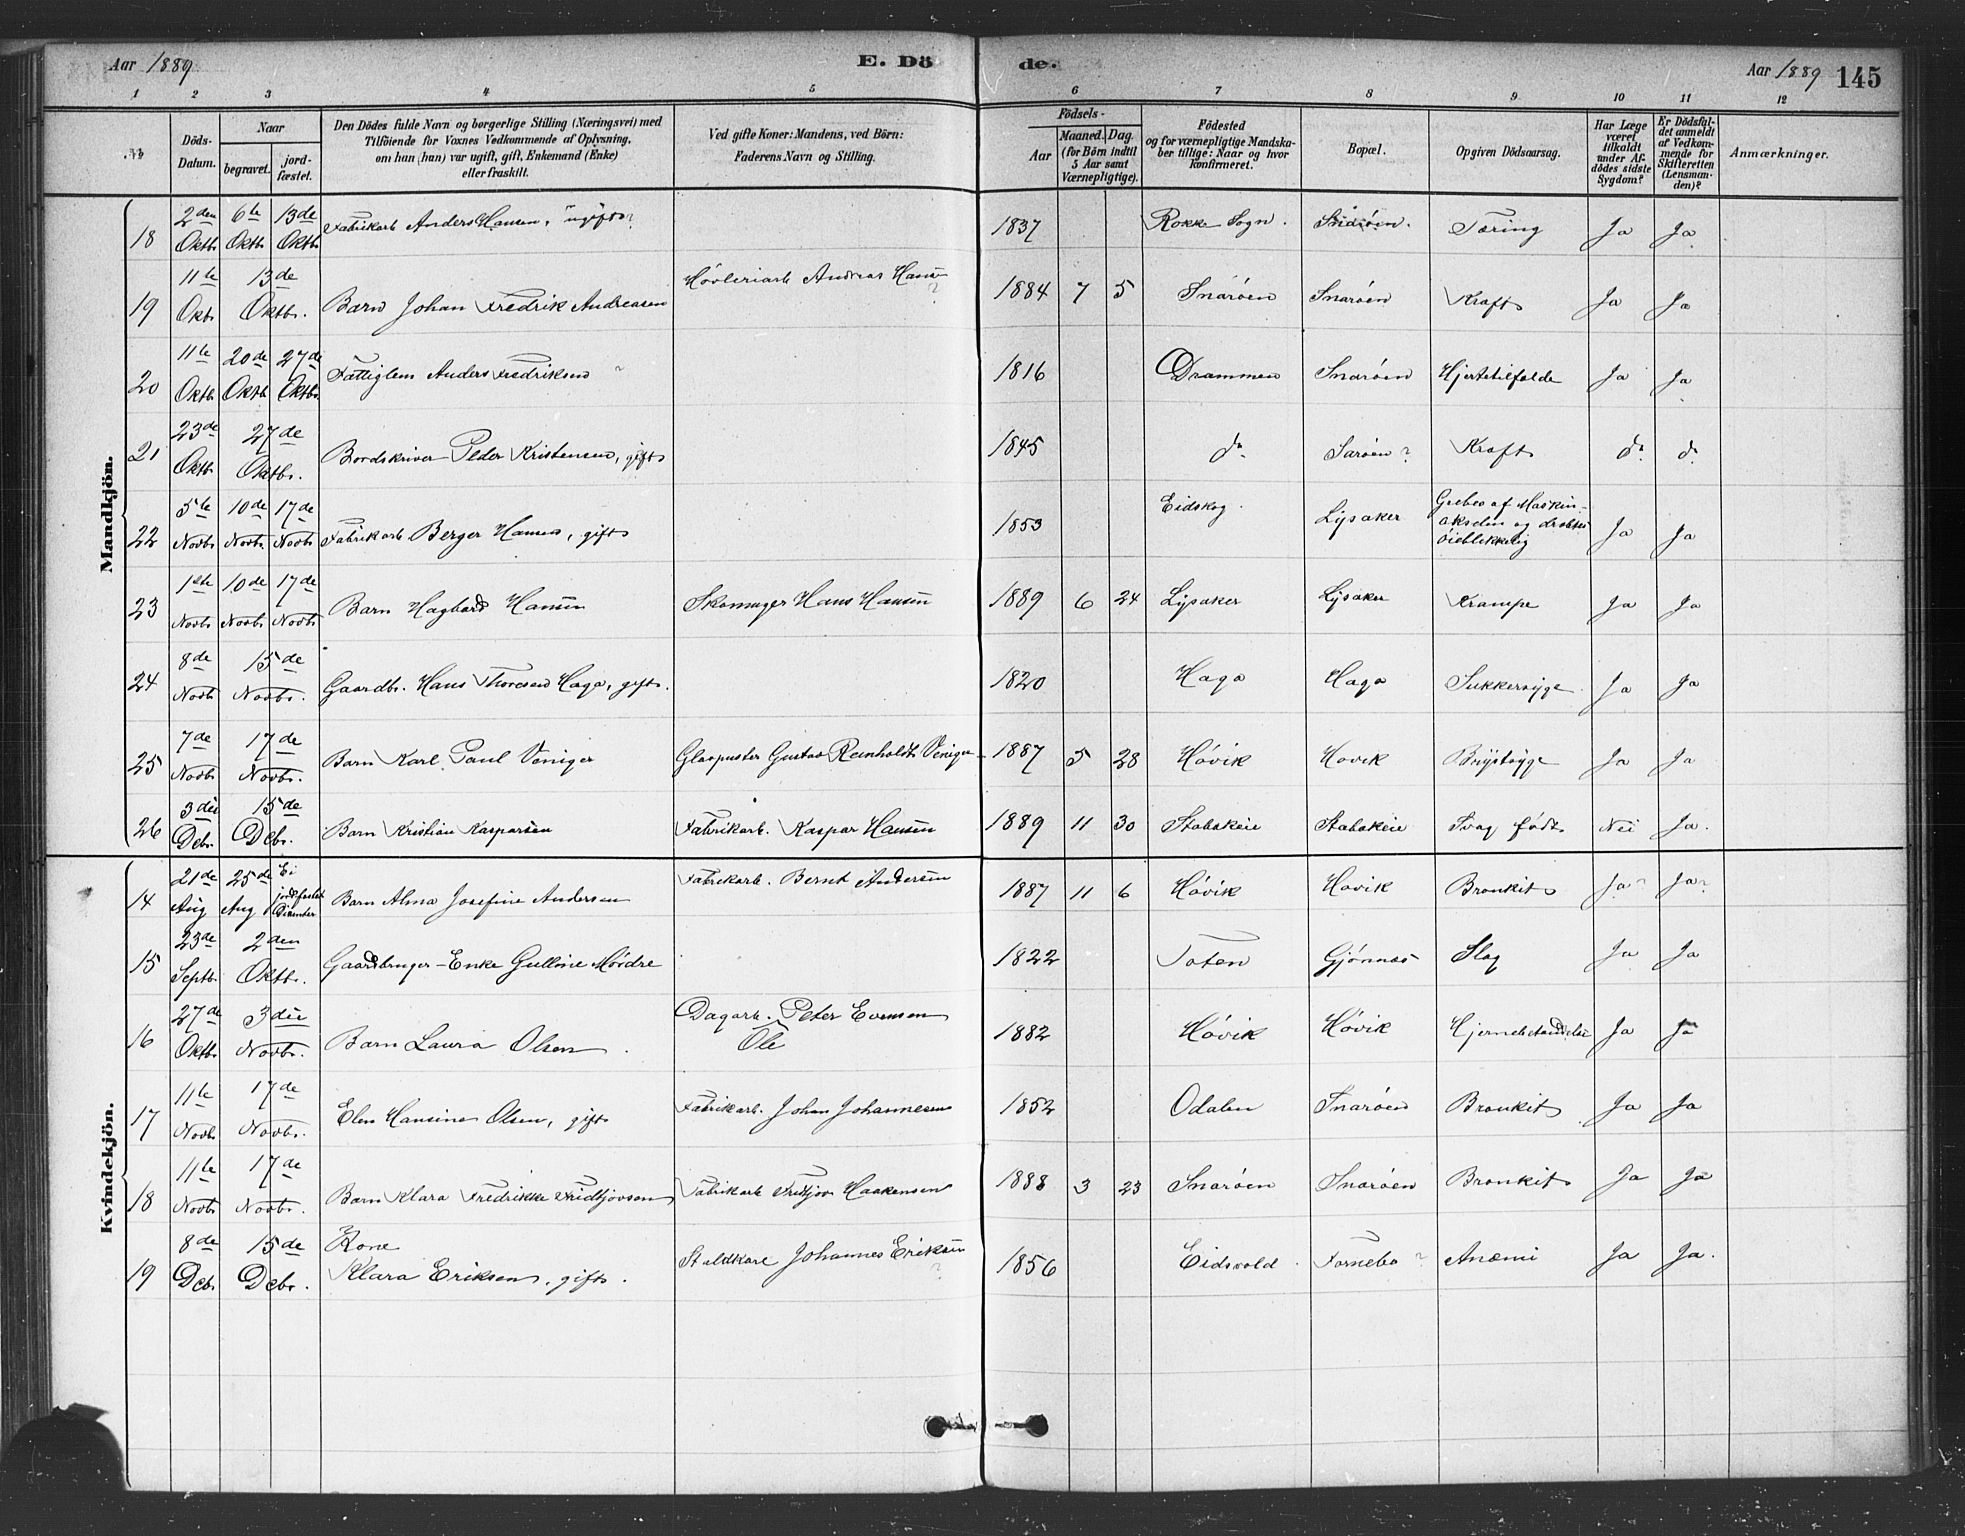 Aar 1889 E. Dö de. Aar 1889 145
1 2 3 4 5 6 7 8 9 10 11 12
№
Döds-
Datum.
Naar
begravet.
jord-
fæstet.
Den Dödes fulde Navn og borgerlige Stilling (Næringsvei) med
Tilföiende for Voxnes Vedkommende af Oplysning,
om han (hun) var ugift, gift, Enkemand (Enke)
eller fraskilt.
Ved gifte Koner: Mandens, ved Börn:
Faderens Navn og Stilling.
Födsels-
Aar
Maaned. Dag.
(for Börn indtil
5 Aar samt
Værnepligtige).
Födested
og for værnepligtige Mandska-
ber tillige: Naar og hvor
konfirmeret.
Bopæl.
Opgiven Dödsaarsag.
Har Læge
været
tilkaldt
under Af-
dödes sidste
Sygdom?
Er Dödsfal-
det anmeldt
af Vedkom-
mende for
Skifteretten
(Lensman-
den)?
Anmærkninger.
Mandkjön.
18 2den Oktb. 6te Oktb. 13de Oktb. Fabrikarb Anders Hansen, "ugift"? 1837 Rokke Sogn. Snarøen. Tæring Ja Ja
19 11te Okb. 13de Oktb. Barn Johan Fredrik Andreasen Høvleriarb Andreas Hansen ? 1884 7 5 Snarøen Snarøen Kraft Ja Ja
20 11te Oktb. 20de Oktb. 27de Oktb. Fattiglem Anders Fredriksen ? 1816 Drammen Snarøen Hjertetilfælde Ja Ja
21 23de Oktb. 27de Oktb. Bordskriver Peder Kristensen, gift 1845 do Sarøen ? Kraft do do
22 5te Novb. 10de Novb. 17de Novb. Fabrikarb Berger Hansen, gift 1853 Eidskog. Lysaker Grebes af Maskin-
akselen og dræbtes
øieblikkelig Ja Ja
23 1ste Novb. 10de Novb. 17de Novb. Barn Hagbard Hansen Skomager Hans Hansen 1889 6 24 Lysaker Lysaker Krampe Ja Ja
24 8de Novb. 15de Novb. Gaardbr. Hans Thoresen Haga, gift. 1820 Haga Haga Sukkersyge Ja Ja
25 7de Novb. 17de Novb. Barn Karl Paul Veniger Glaspuster Gustav Reinholdt Veniger 1887 5 28 Høvik Høvik Brystsyge Ja Ja
26 3die Debr. 15de Debr. Barn Kristian Kaspersen Fabrikarb. Kaspar Hansen 1889 11 30 Stabækeie Stabækeie Svag født Nei Ja.
Kvindekjön.
14 21de Aug 25de Aug Ei
jordfæstet
Barn Alma Josefine Andersen Fabrikarb. Bernt Andersen 1887 11 6 Høvik Høvik Bronkit Ja? Ja?
15 23de Septb. 2den Oktb. Gaardbruger-Enke Gulline Mørdre 1822 Toten Gjønnæs Slag Ja Ja
16 27de Oktb. 3die Novb. Barn Laura Olsen Dagarb. Peter Evensen
Ole 1882 Høvik Høvik Hjernebetændelse Ja Ja
17 11te Novb. 17de Novb. Elen Hansine Olsen, gift Fabrikarb. Johan Johannesen 1852 Odalen Snarøen Bronkit Ja Ja
18 11te Novb. 17de Novb. Barn Klara Fredrikke Fridtjovsen Fabrikarb Fridtjov Haakensen 1888 3 23 Snarøen Snarøen Bronkit Ja Ja
19 8de Debr. 15de Debr. Kone
Klara Eriksen, gift. Staldkarl Johannes Eriksen ? 1856 Eidsvold. Fornebo ? Anæmi Ja Ja.